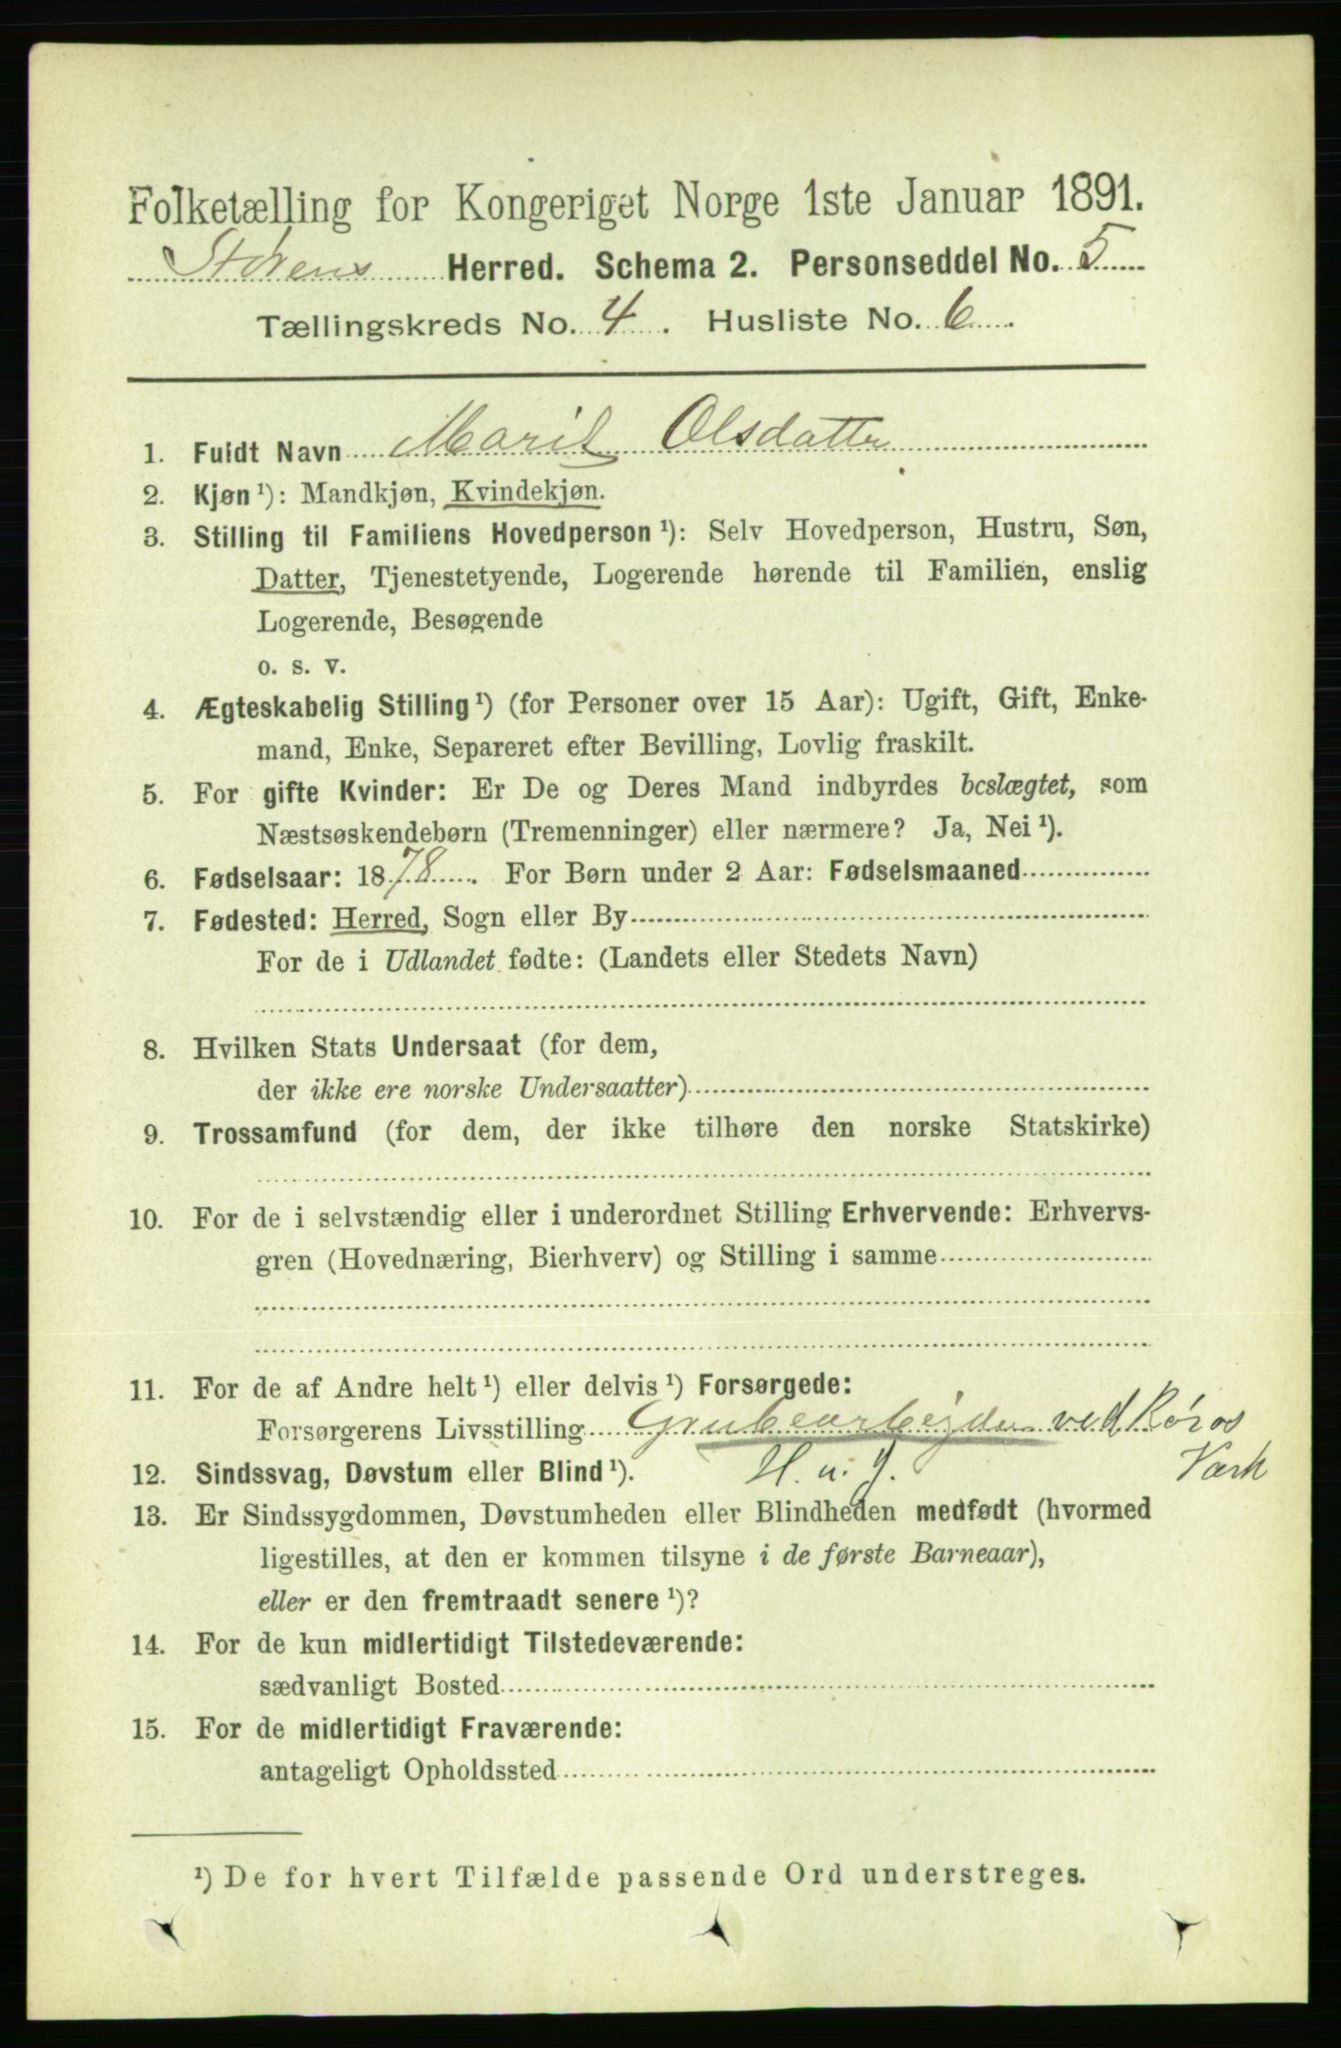 Folketælling for Kongeriget Norge 1ste Januar 1891.
Størens Herred. Schema 2. Personseddel No. 5
Tællingskreds No. 4. Husliste No. 6.
1. Fuldt Navn Marit Olsdatter
2. Kjøn ¹): Mandkjøn, Kvindekjøn.
3. Stilling til Familiens Hovedperson ¹): Selv Hovedperson, Hustru, Søn,
Datter, Tjenestetyende, Logerende hørende til Familien, enslig
Logerende, Besøgende
o. s. v.
4. Ægteskabelig Stilling ¹) (for Personer over 15 Aar): Ugift, Gift, Enke-
mand, Enke, Separeret efter Bevilling, Lovlig fraskilt.
5. For gifte Kvinder: Er De og Deres Mand indbyrdes beslægtet, som
Næstsøskendebørn (Tremenninger) eller nærmere? Ja, Nei ¹).
6. Fødselsaar: 1878. For Børn under 2 Aar: Fødselsmaaned
7. Fødested: Herred, Sogn eller By
For de i Udlandet fødte: (Landets eller Stedets Navn)
8. Hvilken Stats Undersaat (for dem,
der ikke ere norske Undersaatter)
9. Trossamfund (for dem, der ikke tilhøre den norske Statskirke)
10. For de i selvstændig eller i underordnet Stilling Erhvervende: Erhvervs-
gren (Hovednæring, Bierhverv) og Stilling i samme
11. For de af Andre helt ¹) eller delvis ¹) Forsørgede:
Forsørgerens Livsstilling Grubearbejder ved Røros
Værk
12. Sindssvag, Døvstum eller Blind ¹). H. u. J.
13. Er Sindssygdommen, Døvstumheden eller Blindheden medfødt (hvormed
ligestilles, at den er kommen tilsyne i de første Barneaar),
eller er den fremtraadt senere ¹)?
14. For de kun midlertidigt Tilstedeværende:
sædvanligt Bosted
15. For de midlertidigt Fraværende:
antageligt Opholdssted
¹) De for hvert Tilfælde passende Ord understreges.